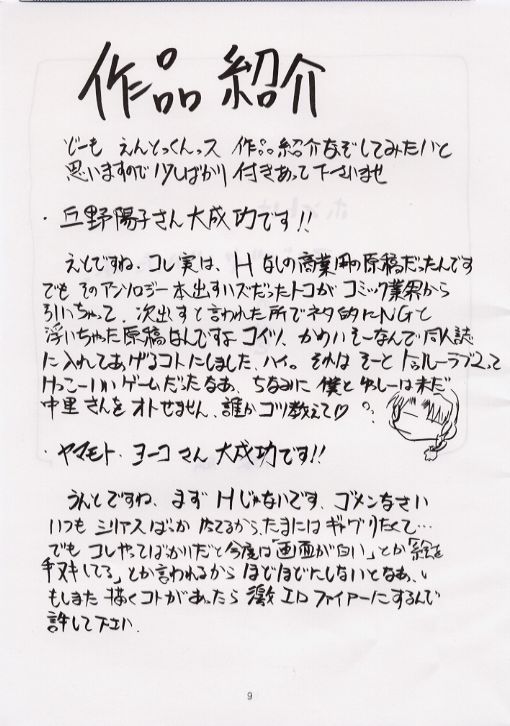 作品紹介
どーも えんどっくんっス 作品紹介なぞしてみたいと
思いますので 少しばかり 付きあって下さいませ
・丘野陽子さん大成功です!!
えとですね、コレ実は、Hなしの商業用の原稿だったんです
でも そのアンソロジー本出すハズだったトコが コミック業界から
引いちゃって、次出すと言われた所でネタ的にNGと
浮いちゃった原稿なんですよ コイツ、かわいそーなんで同人誌
に入れてあげるコトにしました、ハイ。それは そーと トゥルーラブ2って
けっこーいいゲームだったなあ、ちなみに 僕と は未だ
中里さんを オトせません、誰か コツ教えて♡
・ヤマモト・ヨーコさん 大成功です!!
うんとですね、まず Hじゃないです、ゴメンなさい
いつも シリアスばっか 出てるから、たまにはギャグりたくて…
でも コレやってばかりだと今度は「画面が白い」とか「絵を
手ヌキしてる」とか言われるから ほどほどにしないとなあ、
もしまた 描くコトがあったら 激エロファイアーにするんで
許して下さい.
9